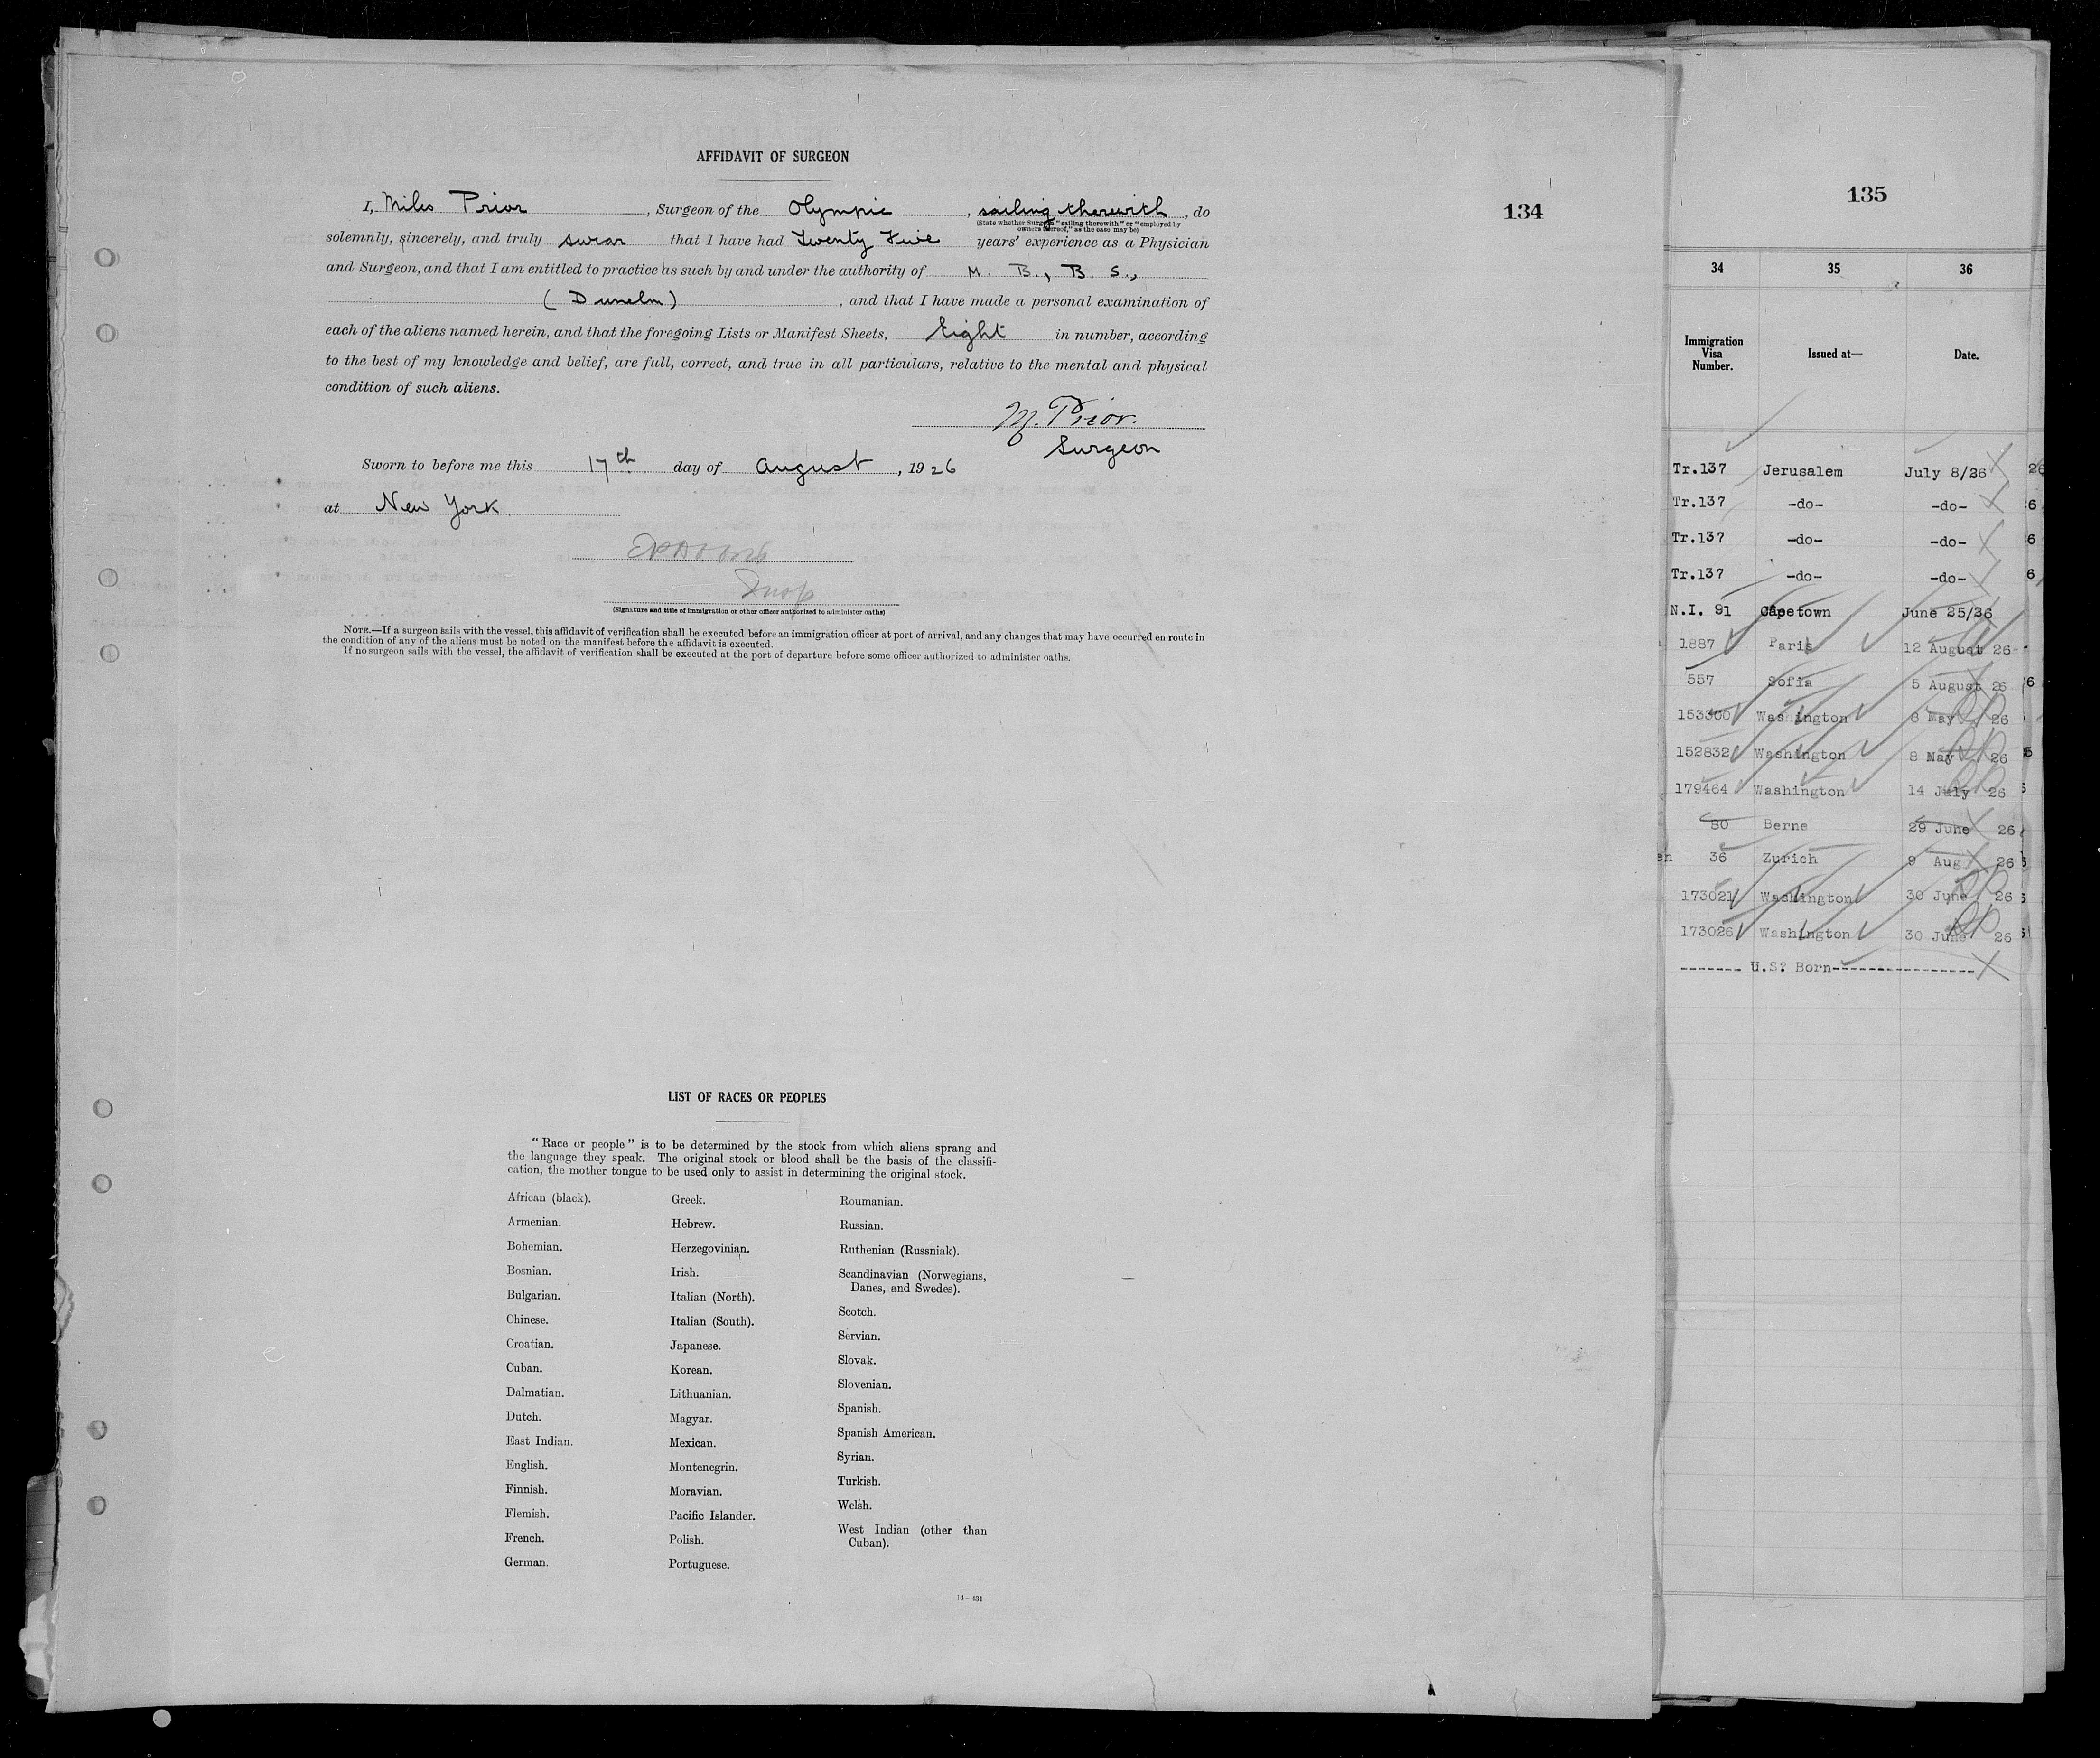 AFFIDAVIT OF SURGEON
I, Miles Prior, Surgeon of the Olympic, sailing therewith, do
(State whether Surgeon "sailing therewith" or "employed by
owners thereof," as the case may be)
solemnly, sincerely, and truly swear that I have had Twenty Five years' experience as a Physician
and Surgeon, and that I am entitled to practice as such by and under the authority of M. B., B. S.,
(Dunelm), and that I have made a personal examination of
each of the aliens named herein, and that the foregoing Lists or Manifest Sheets, Eight in number, according
to the best of my knowledge and belief, are full, correct, and true in all particulars, relative to the mental and physical
condition of such aliens.
M. Prior.
Surgeon
Sworn to before me this 17th day of August, 1926
at New York
Insp
(Signature and title of immigration or other officer authorized to administer oaths)
NOTE.—If a surgeon sails with the vessel, this affidavit of verification shall be executed before an immigration officer at port of arrival, and any changes that may have occurred en route in
the condition of any of the aliens must be noted on the manifest before the affidavit is executed.
If no surgeon sails with the vessel, the affidavit of verification shall be executed at the port of departure before some officer authorized to administer oaths.
134
LIST OF RACES OR PEOPLES
"Race or people" is to be determined by the stock from which aliens sprang and
the language they speak. The original stock or blood shall be the basis of the classifi-
cation, the mother tongue to be used only to assist in determining the original stock.
African (black).
Armenian.
Bohemian.
Bosnian.
Bulgarian.
Chinese.
Croatian.
Cuban.
Dalmatian.
Dutch.
East Indian.
English.
Finnish.
Flemish.
French.
German.
Greek.
Hebrew.
Herzegovinian.
Irish.
Italian (North).
Italian (South).
Japanese.
Korean.
Lithuanian.
Magyar.
Mexican.
Montenegrin.
Moravian.
Pacific Islander.
Polish.
Portuguese.
Roumanian.
Russian.
Ruthenian (Russniak).
Scandinavian (Norwegians,
Danes, and Swedes).
Scotch.
Servian.
Slovak.
Slovenian.
Spanish.
Spanish American.
Syrian.
Turkish.
Welsh.
West Indian (other than
Cuban).
14—431
135
34 35 36
Immigration
Visa
Number.
Issued at—
Date.
Tr.137 Jerusalem July 8/26
Tr.137 -do- -do-
Tr.137 -do- -do-
Tr.137 -do- -do-
N.I. 91 Capetown June 25/26
1887 Paris 12 August 26
557 Sofia 5 August 26
153300 Washington 8 May 26
152832 Washington 8 May 26
179464 Washington 14 July 26
80 Berne 29 June 26
36 Zurich 9 Aug 26
173021 Washington 30 June 26
173026 Washington 30 June 26
------- U.S? Born----------------